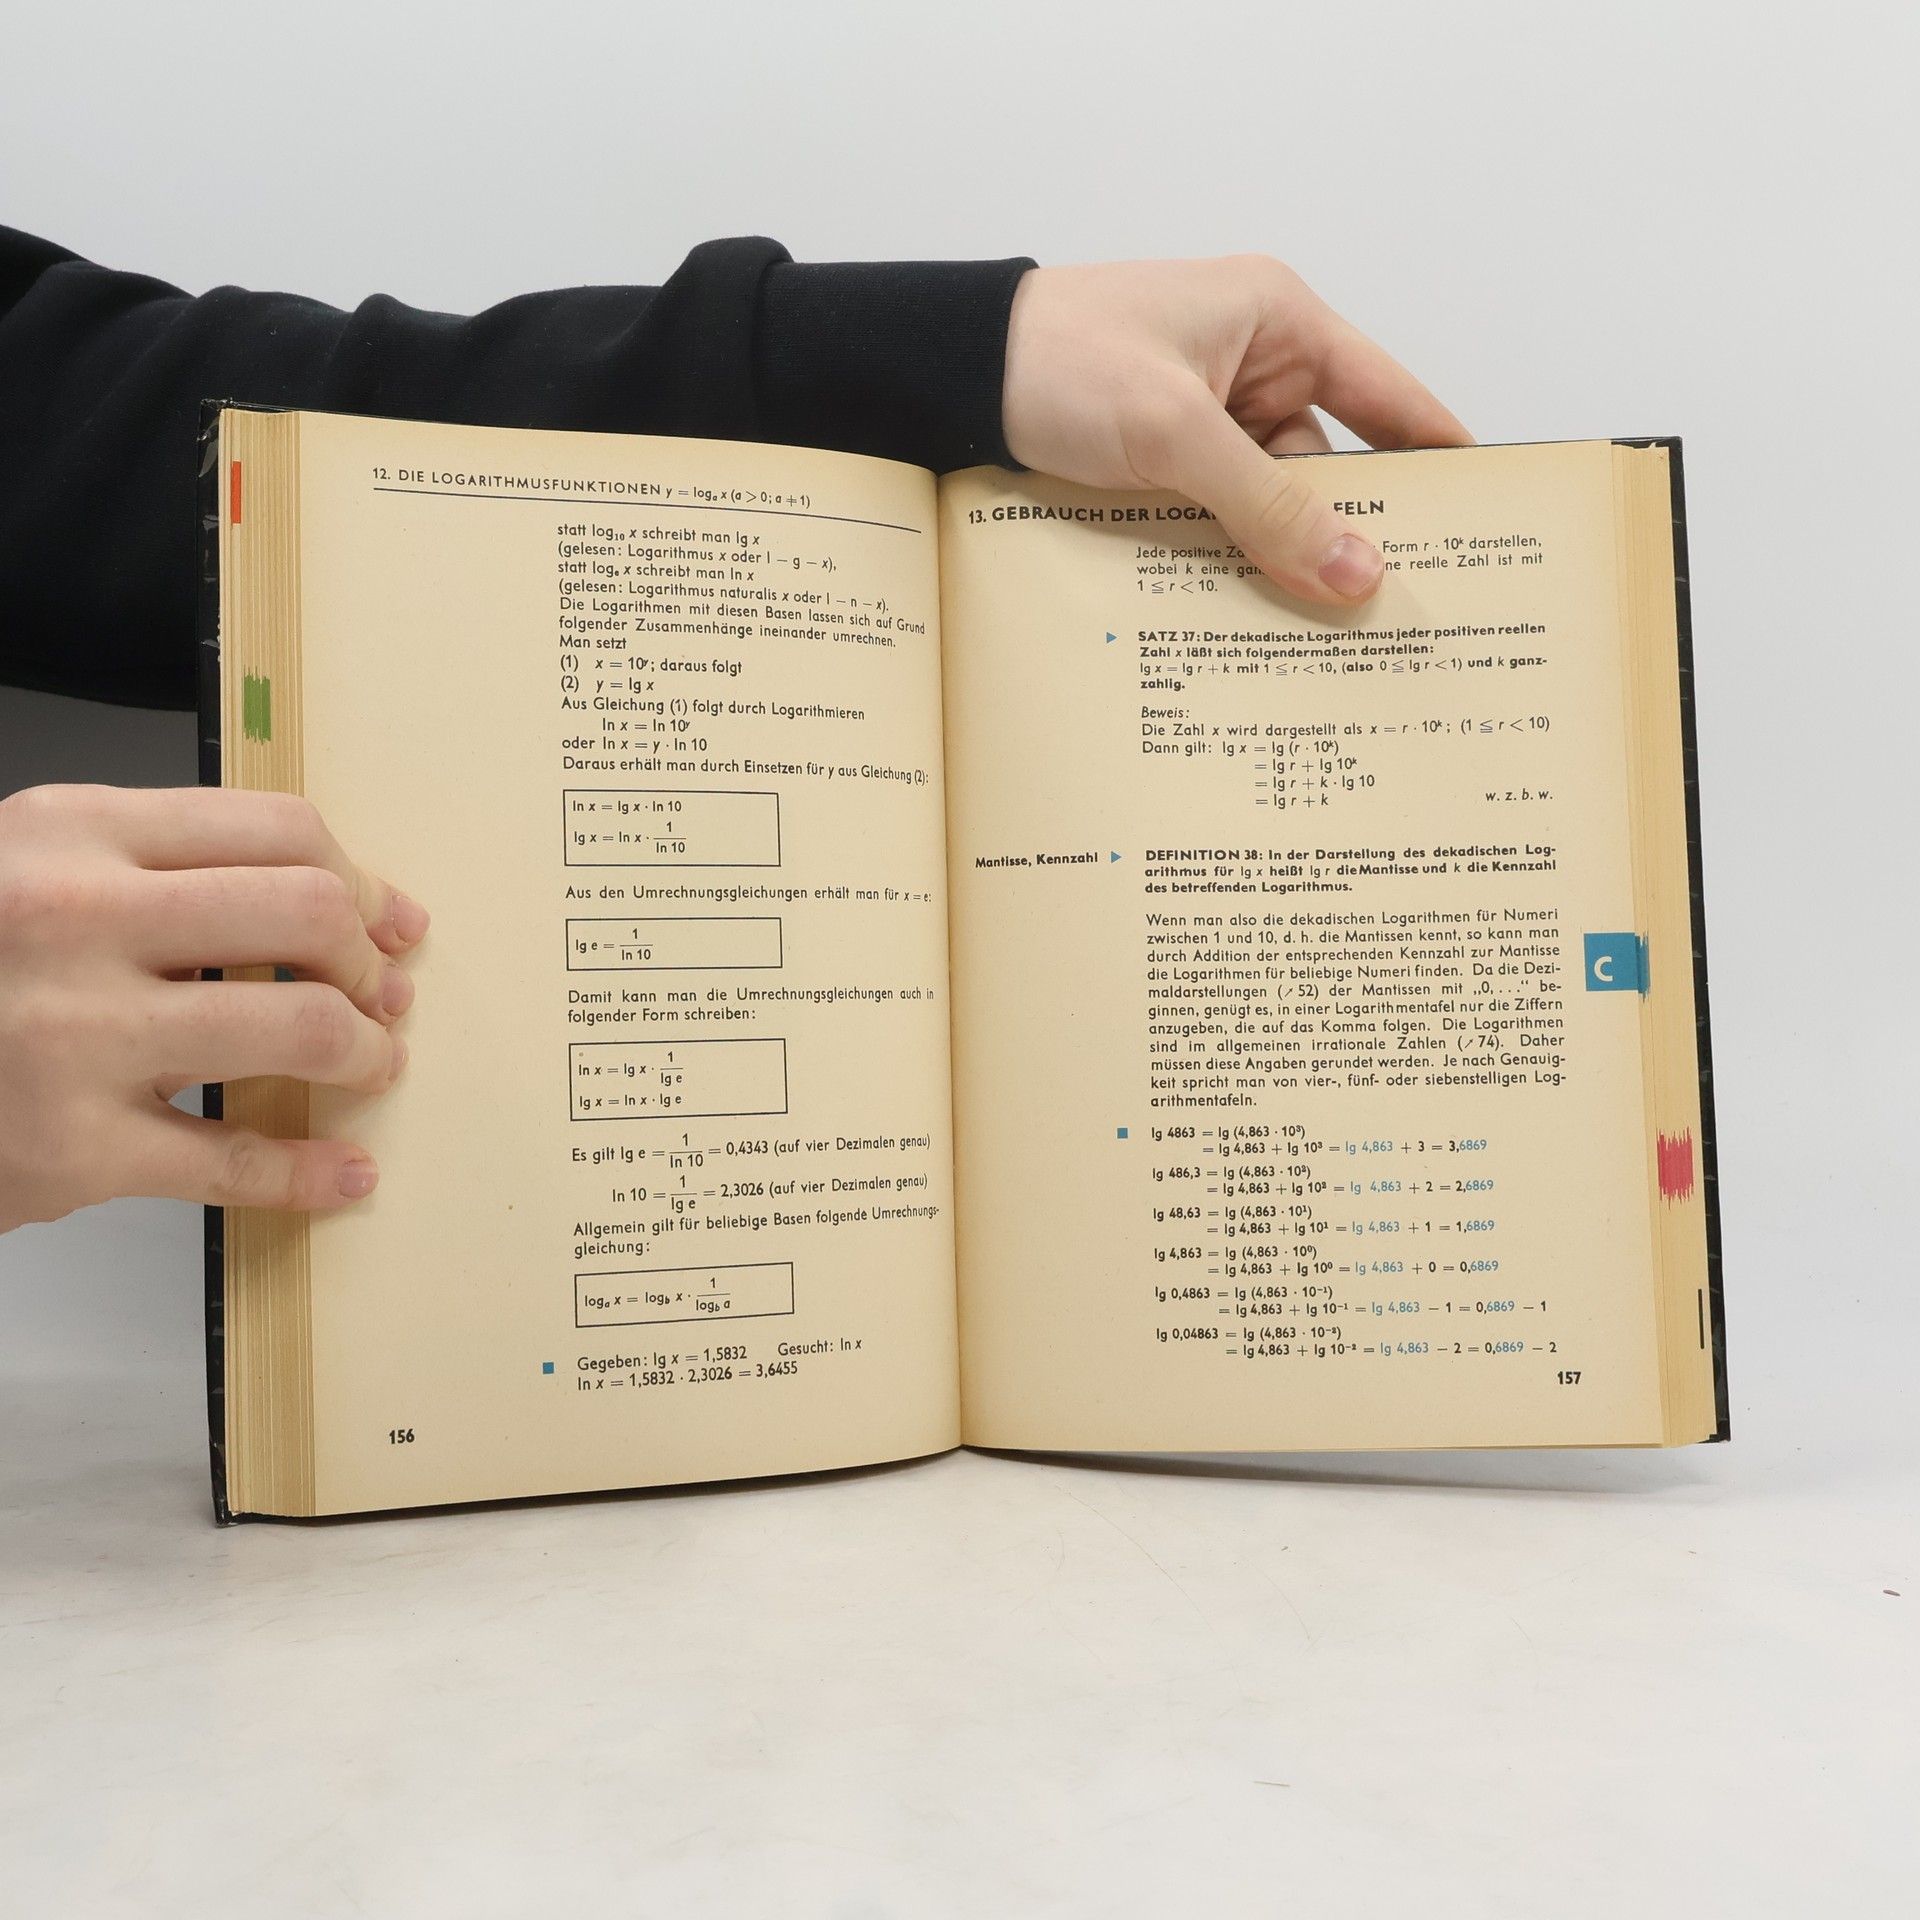 12. DIE LOGARITHMUSFUNKTIONEN y = logₐ x (a > 0; a ≠ 1)
statt log₁₀ x schreibt man lg x
(gelesen: Logarithmus x oder l – g – x),
statt logₑ x schreibt man ln x
(gelesen: Logarithmus naturalis x oder l – n – x).
Die Logarithmen mit diesen Basen lassen sich auf Grund
folgender Zusammenhänge ineinander umrechnen.
Man setzt
(1) x = 10ʸ; daraus folgt
(2) y = lg x
Aus Gleichung (1) folgt durch Logarithmieren
ln x = ln 10ʸ
oder ln x = y · ln 10
Daraus erhält man durch Einsetzen für y aus Gleichung (2):
ln x = lg x · ln 10
lg x = ln x · 1/ln 10
Aus den Umrechnungsgleichungen erhält man für x = e:
lg e = 1/ln 10
Damit kann man die Umrechnungsgleichungen auch in
folgender Form schreiben:
ln x = lg x · 1/lg e
lg x = ln x · lg e
Es gilt lg e = 1/ln 10 = 0,4343 (auf vier Dezimalen genau)
ln 10 = 1/lg e = 2,3026 (auf vier Dezimalen genau)
Allgemein gilt für beliebige Basen folgende Umrechnungs-
gleichung:
logₐ x = log_b x · 1/log_b a
Gegeben: lg x = 1,5832 Gesucht: ln x
ln x = 1,5832 · 2,3026 = 3,6455
156
13. GEBRAUCH DER
Jede positive Form r · 10ᵏ darstellen,
wobei k eine reelle Zahl ist mit
1 ≦ r < 10.
SATZ 37: Der dekadische Logarithmus jeder positiven reellen
Zahl x läßt sich folgendermaßen darstellen:
lg x = lg r + k mit 1 ≦ r < 10, (also 0 ≦ lg r < 1) und k ganz-
zahlig.
Beweis:
Die Zahl x wird dargestellt als x = r · 10ᵏ; (1 ≦ r < 10)
Dann gilt: lg x = lg (r · 10ᵏ)
= lg r + lg 10ᵏ
= lg r + k · lg 10
= lg r + k w. z. b. w.
Mantisse, Kennzahl
DEFINITION 38: In der Darstellung des dekadischen Log-
arithmus für lg x heißt lg r die Mantisse und k die Kennzahl
des betreffenden Logarithmus.
Wenn man also die dekadischen Logarithmen für Numeri
zwischen 1 und 10, d. h. die Mantissen kennt, so kann man
durch Addition der entsprechenden Kennzahl zur Mantisse
die Logarithmen für beliebige Numeri finden. Da die Dezi-
maldarstellungen (↗ 52) der Mantissen mit „0, . . .“ be-
ginnen, genügt es, in einer Logarithmentafel nur die Ziffern
anzugeben, die auf das Komma folgen. Die Logarithmen
sind im allgemeinen irrationale Zahlen (↗ 74). Daher
müssen diese Angaben gerundet werden. Je nach Genauig-
keit spricht man von vier-, fünf- oder siebenstelligen Log-
arithmentafeln.
C
lg 4863 = lg (4,863 · 10³)
= lg 4,863 + lg 10³ = lg 4,863 + 3 = 3,6869
lg 486,3 = lg (4,863 · 10²)
= lg 4,863 + lg 10² = lg 4,863 + 2 = 2,6869
lg 48,63 = lg (4,863 · 10¹)
= lg 4,863 + lg 10¹ = lg 4,863 + 1 = 1,6869
lg 4,863 = lg (4,863 · 10⁰)
= lg 4,863 + lg 10⁰ = lg 4,863 + 0 = 0,6869
lg 0,4863 = lg (4,863 · 10⁻¹)
= lg 4,863 + lg 10⁻¹ = lg 4,863 – 1 = 0,6869 – 1
lg 0,04863 = lg (4,863 · 10⁻²)
= lg 4,863 + lg 10⁻² = lg 4,863 – 2 = 0,6869 – 2
157